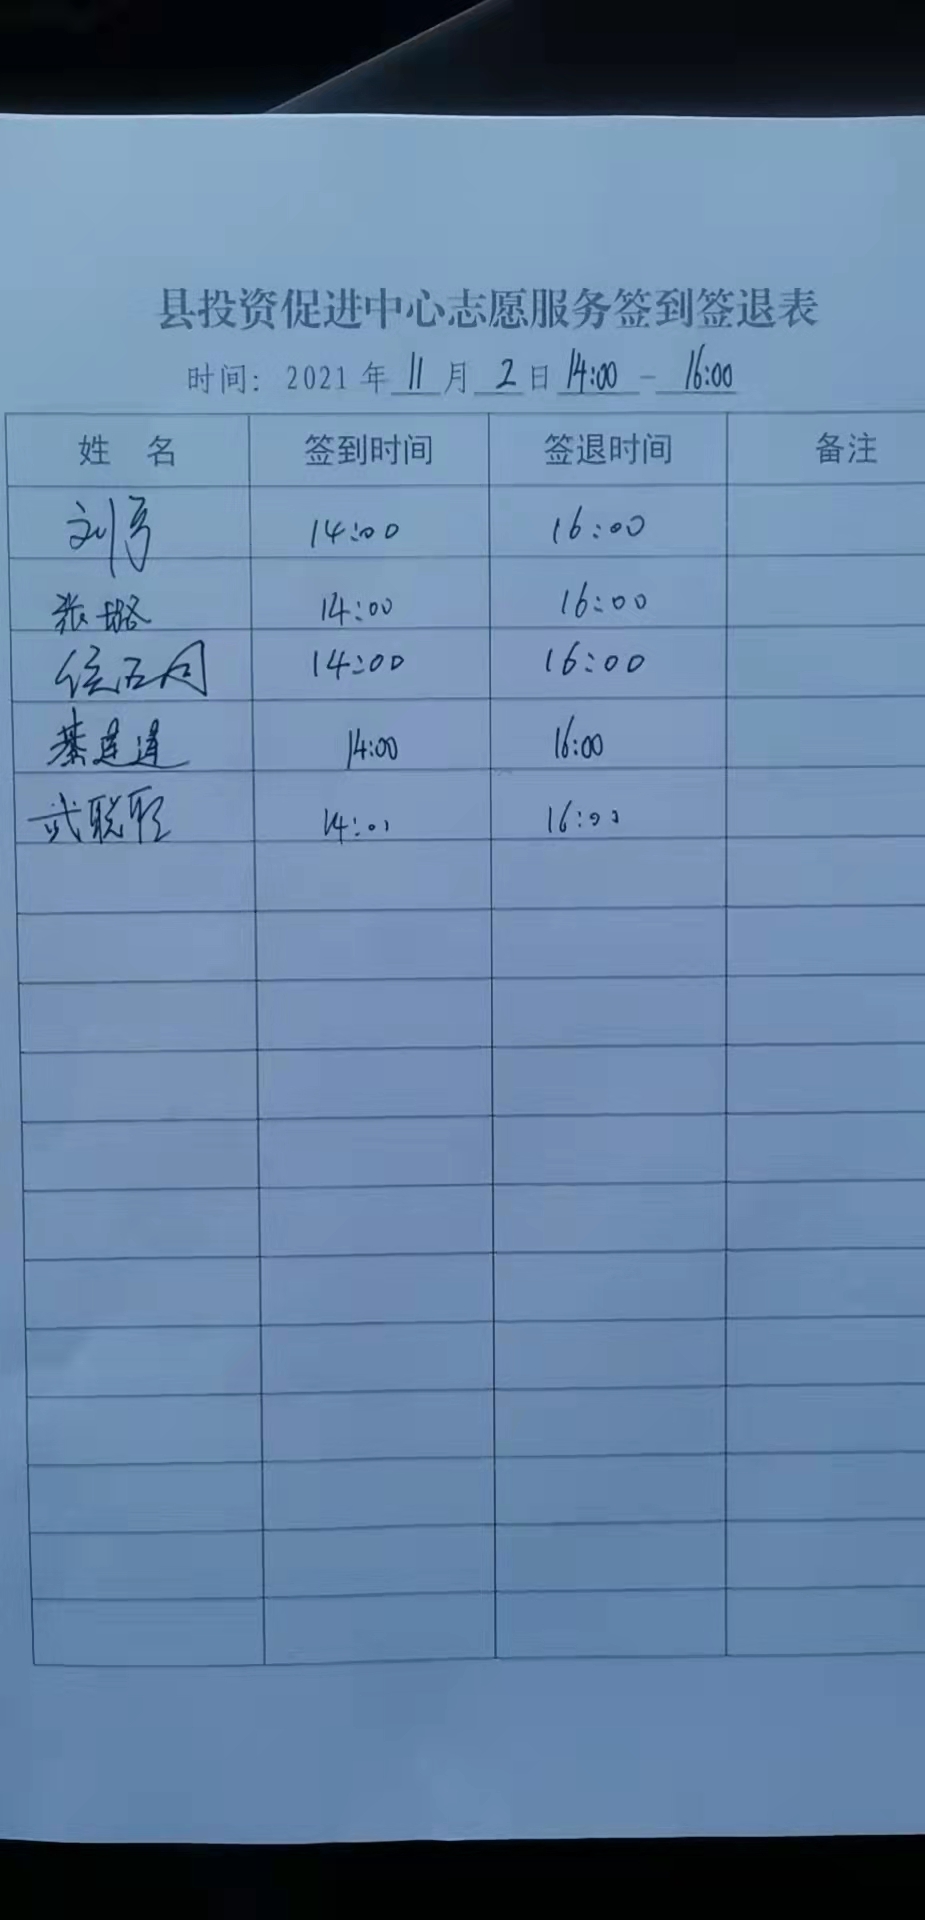 县投资促进中心志愿服务签到签退表
时间：2021年 11 月 2 日 14:00 - 16:00
姓 名 签到时间 签退时间 备注
14:00 16:00
张璐 14:00 16:00
14:00 16:00
綦莲莲 14:00 16:00
武聪 14:00 16:00